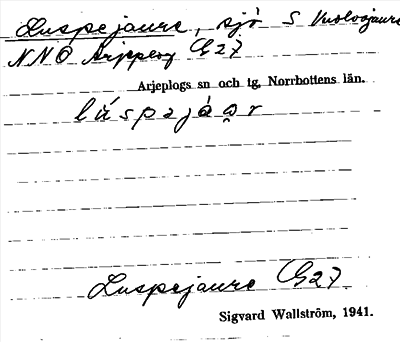 Luspejaure, sjö S Kuolojaure
NNO Arjeplog G27
Arjeplogs sn och tg, Norrbottens län.
lúspejáu̯r
Luspejaure G27
Sigvard Wallström, 1941.